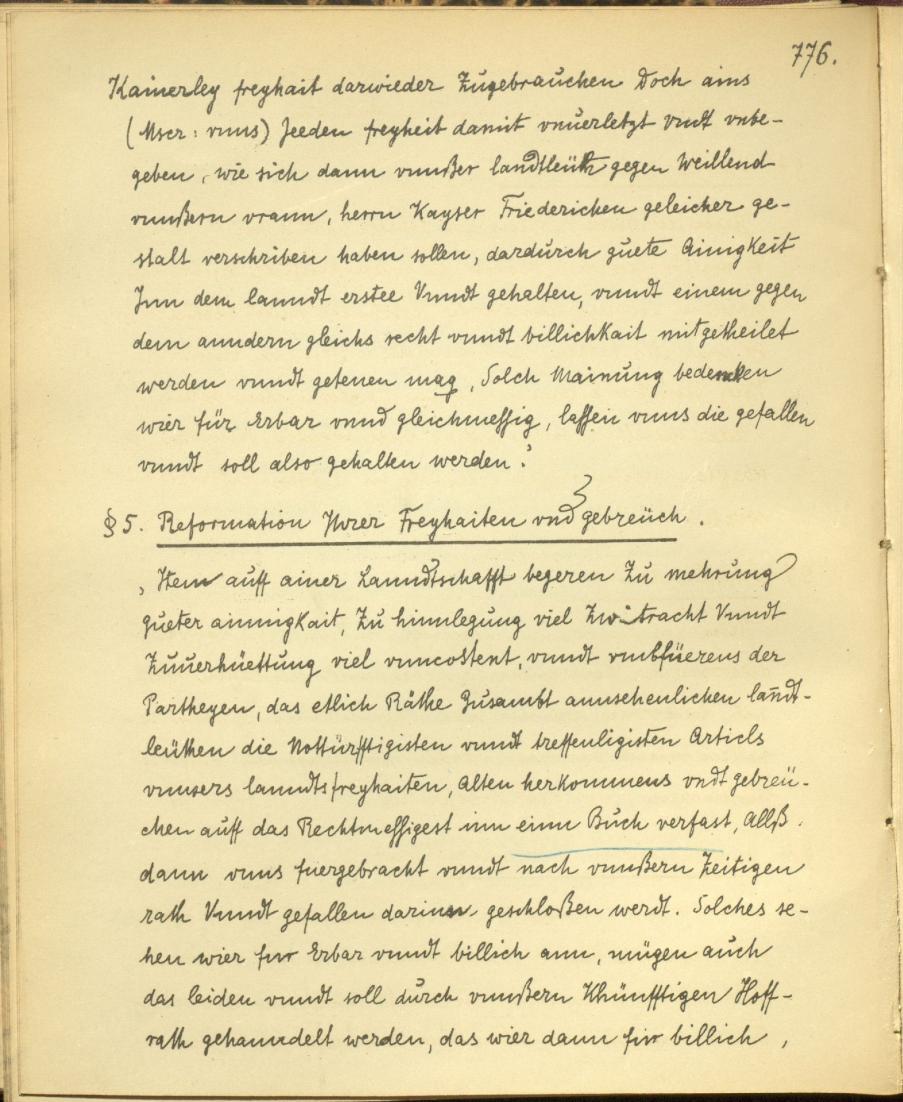 776.
Kainerley freyhait darwieder Zugebrauchen Doch ains
(Mscr: vnns) Jeeden freyheit damit vnuerletzt vndt vnbe-
geben, wie sich dann vnnßer landtleüth gegen Weillend
vnnßern vrann, herrn Kayser Friederichen geleicher ge-
stalt verschriben haben sollen, dardurch guete Ainigkeit
Inn dem lanndt erstee Vnndt gehalten, vnndt einem gegen
dem anndern gleichs recht vnndt billichkait mitgetheilet
werden vnndt gefenen mag, Solch Mainung bedencken
wier für Erbar vnnd gleichmessig, lassen vnns die gefallen
vnndt soll also gehalten werden.'
§ 5. Reformation Ihrer Freyhaiten vnd gebreüch.
, Item auff ainer Lanndtschafft begeren Zu mehrung
gueter ainnigkait, Zu hinnlegung viel Zwitracht Vnndt
Zuuerhüettung viel vnncostent, vnndt vmbfüerens der
Partheyen, das etlich Räthe Zusambt annsehenlichen landt-
leüthen die Nottürfftigisten vnndt treffenligisten Articls
vnnsers lanndtsfreyhaiten, Alten herkommens vndt gebreü-
chen auff das Rechtmessigest inn einn Buch verfast, Allß
dann vnns fuergebracht vnndt nach vnnßern Zeitigen
rath Vnndt gefallen darinn geschloßen werdt. Solches se-
hen wier fur Erbar vnndt billich ann, mügen auch
das leiden vnndt soll durch vnnßern Khünfftigen Hoff-
rath gehanndelt werden, das wier dann für billich,